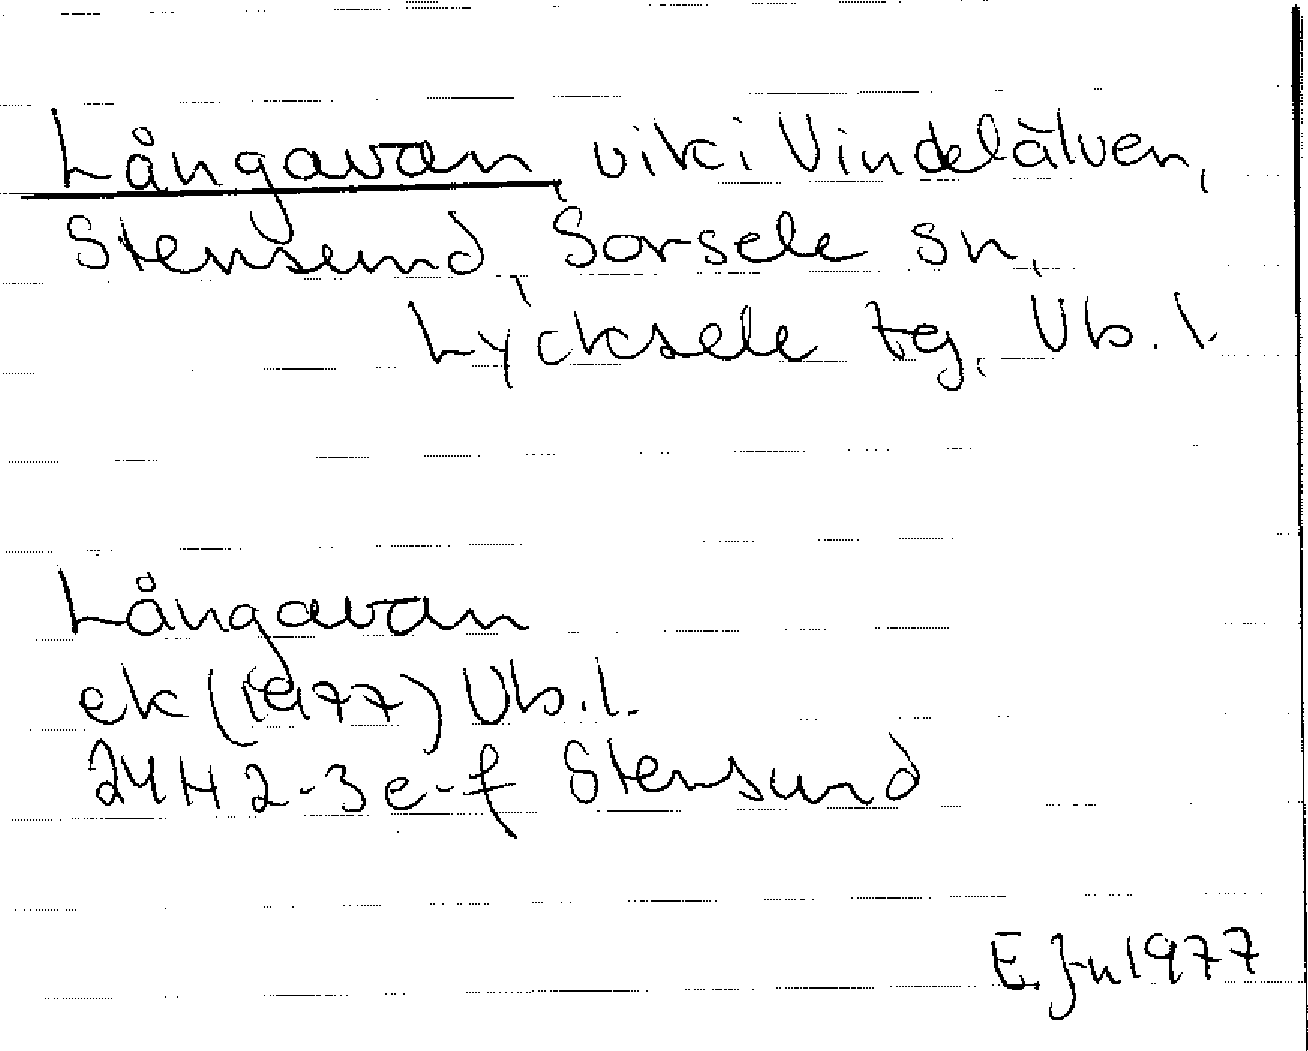 Långavan, vik i Vindelälven,
Stensund, Sorsele sn,
Lycksele tg, Vb. l.
Långavan
ek (1977) Vb. l.
24 H 2-3 e-f Stensund
E. Jn 1977